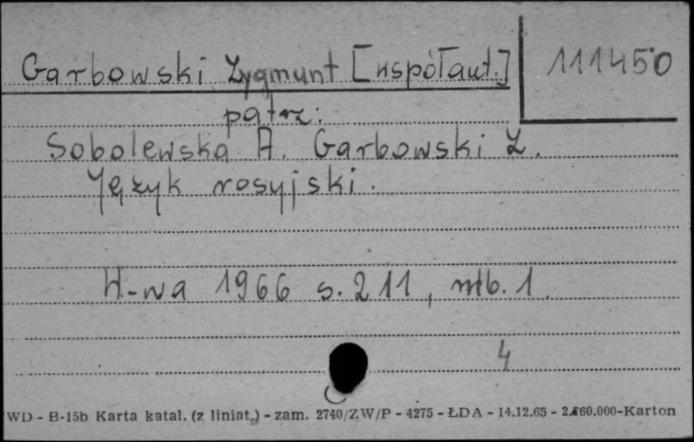 Garbowski Zygmunt [współaut.] 111450
patrz:
Sobolewska A. Garbowski Z.
Język rosyjski.
W-wa 1966 s. 211, nlb. 1.
4
WD - B-15b Karta katal. (z liniat.) - zam. 2740/ZW/P - 4275 - ŁDA - 14.12.65 - 2.860.000-Karton